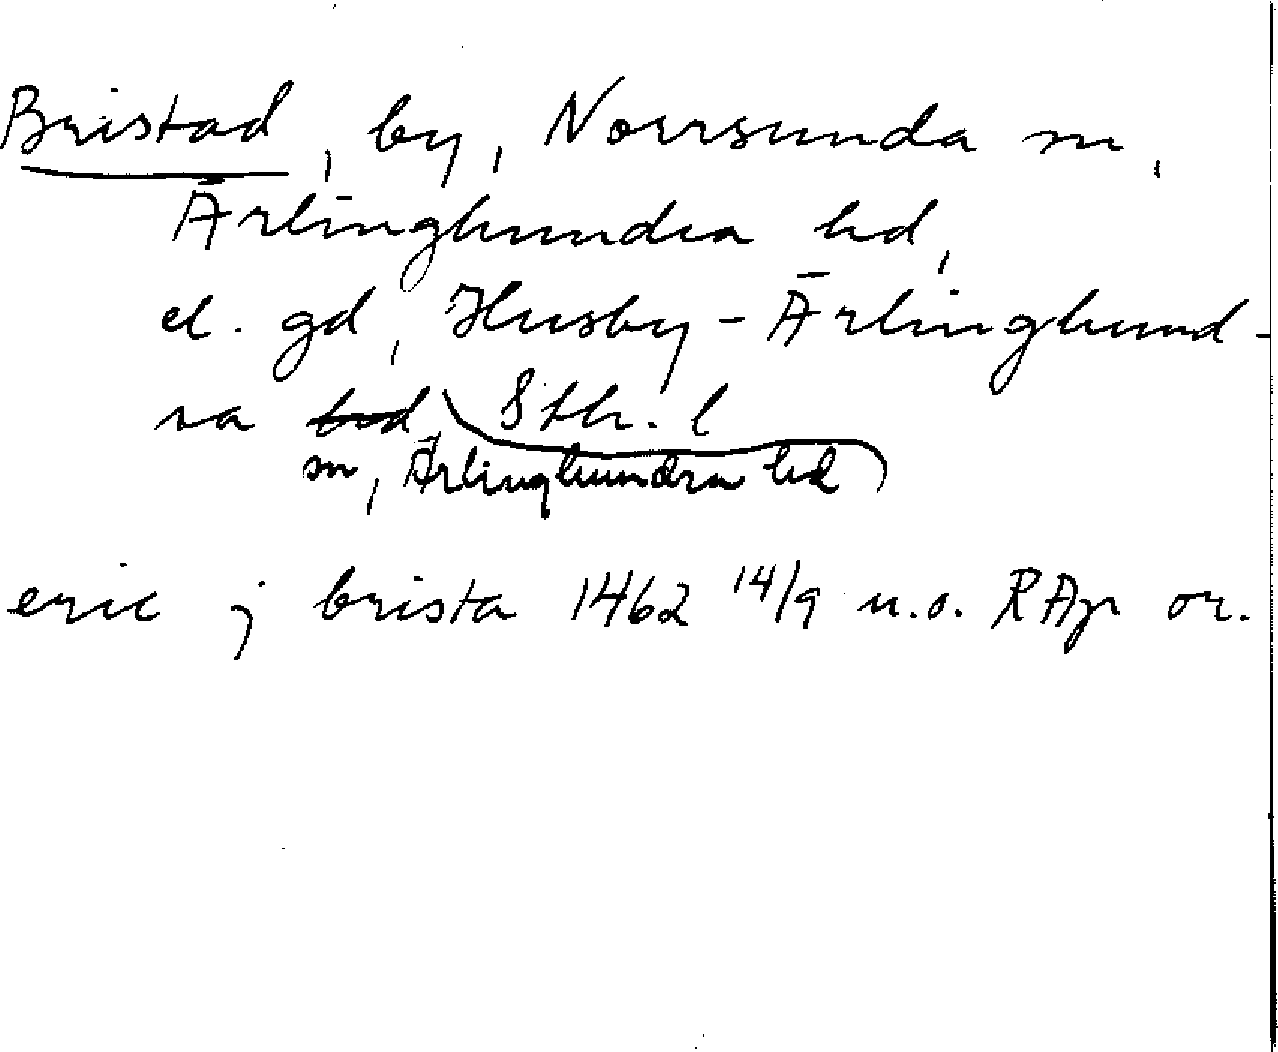 Bristad, by, Norrsunda sn,
Ärlinghundra hd,
el. gd, Husby-Ärlinghund-
ra hd, Sth. l
sn, Ärlinghundra hd
eric j brista 1462 14/9 u.o. RAp or.